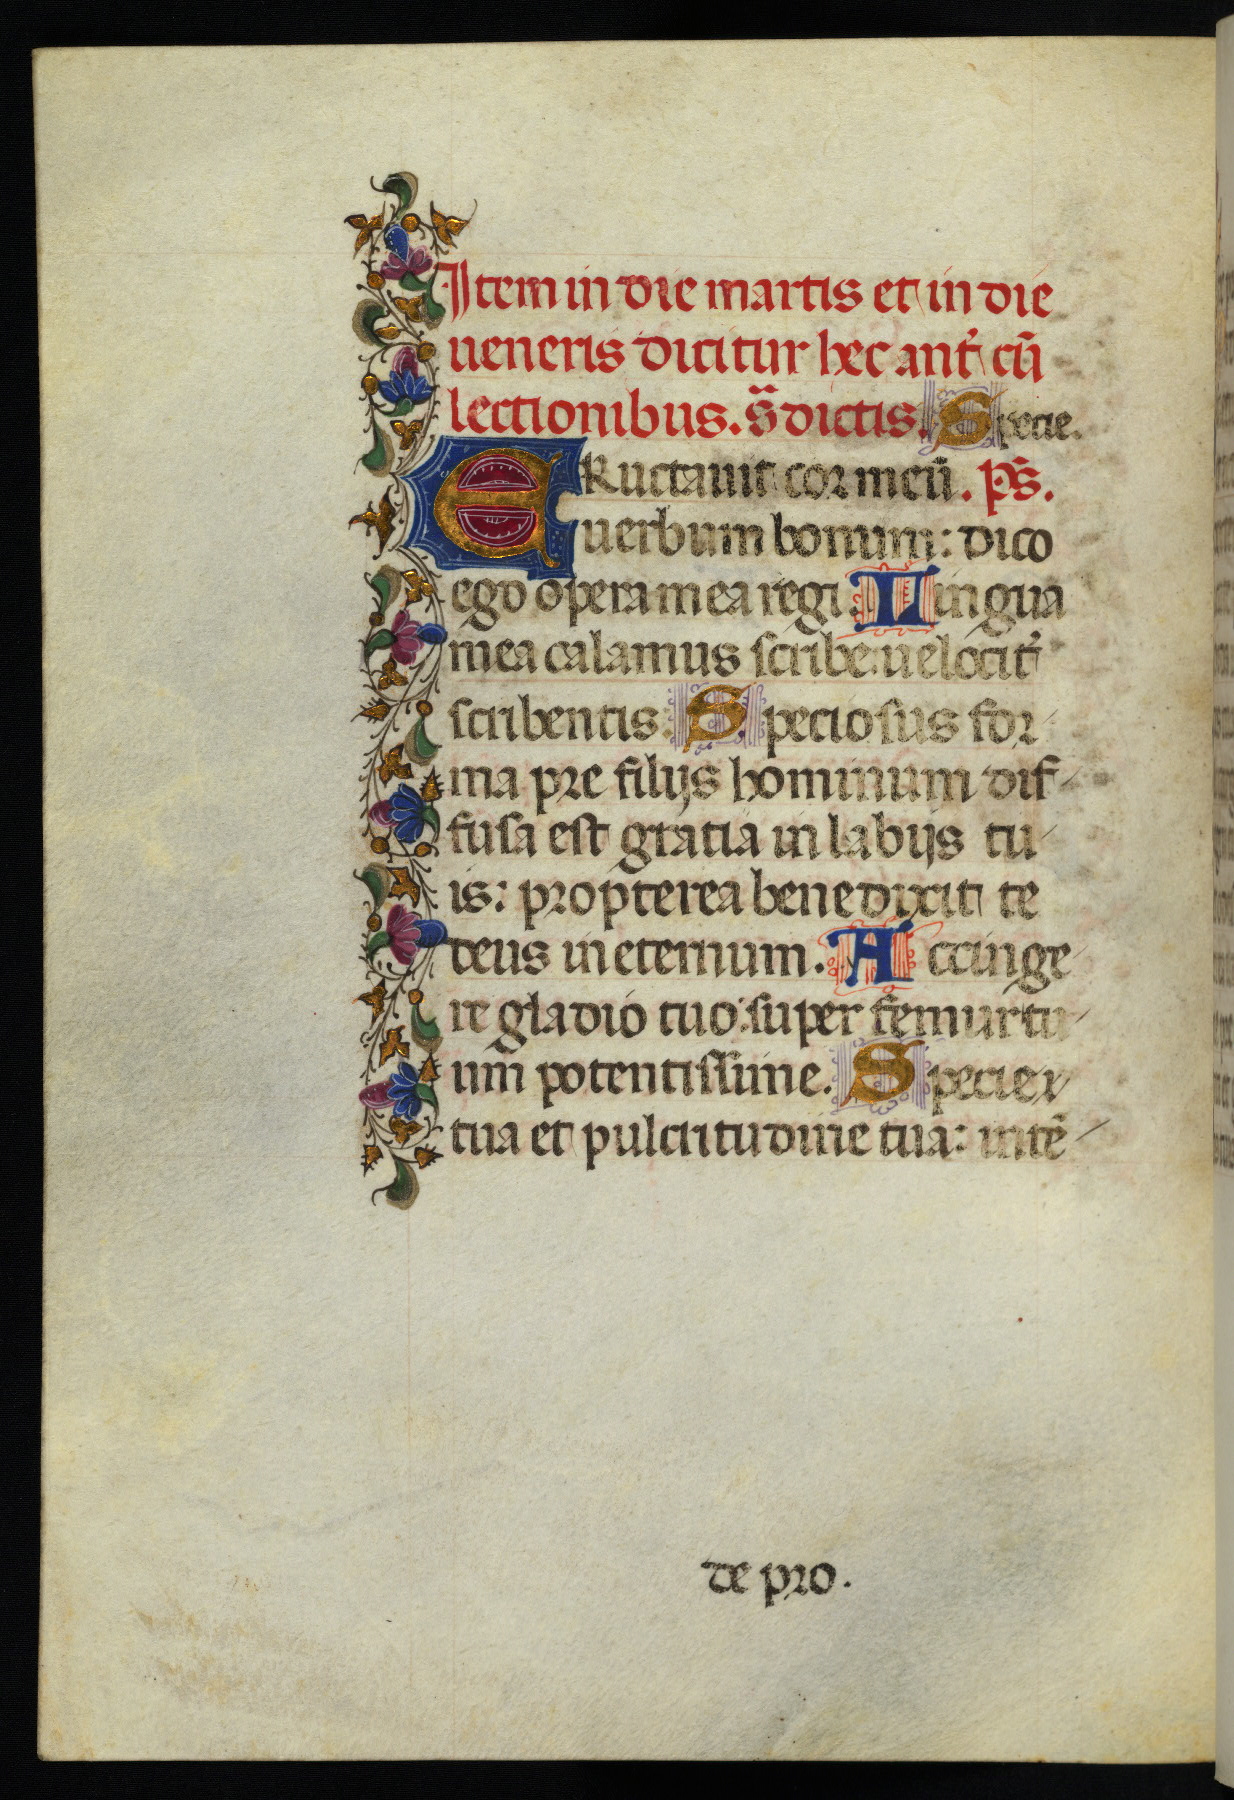 Item in die martis et in die
ueneris dicitur hec antˀ cū
lectionibus. s̄dictis. Specie.
ERuctauit cor meū. ps̄.
uerbum bonum: dico
ego opera mea regi. Lingua
mea calamus scribe: uelocitˀ
scribentis: Speciosus for-
ma pre filijs hominum dif-
fusa est gratia in labijs tu-
is: propterea benedixit te
deus in eternum. Accinge-
re gladio tuo: super femur tu-
um potentissime. Specie-
tua et pulcritudine tua: intē-
de pro.